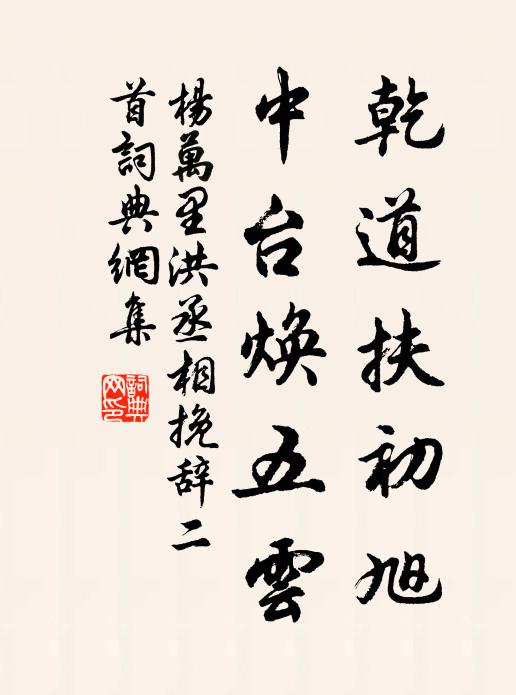 乾道扶初旭
中台煥五雲
楊萬里洪丞相挽辞二
首詞典網集
詞典
网印